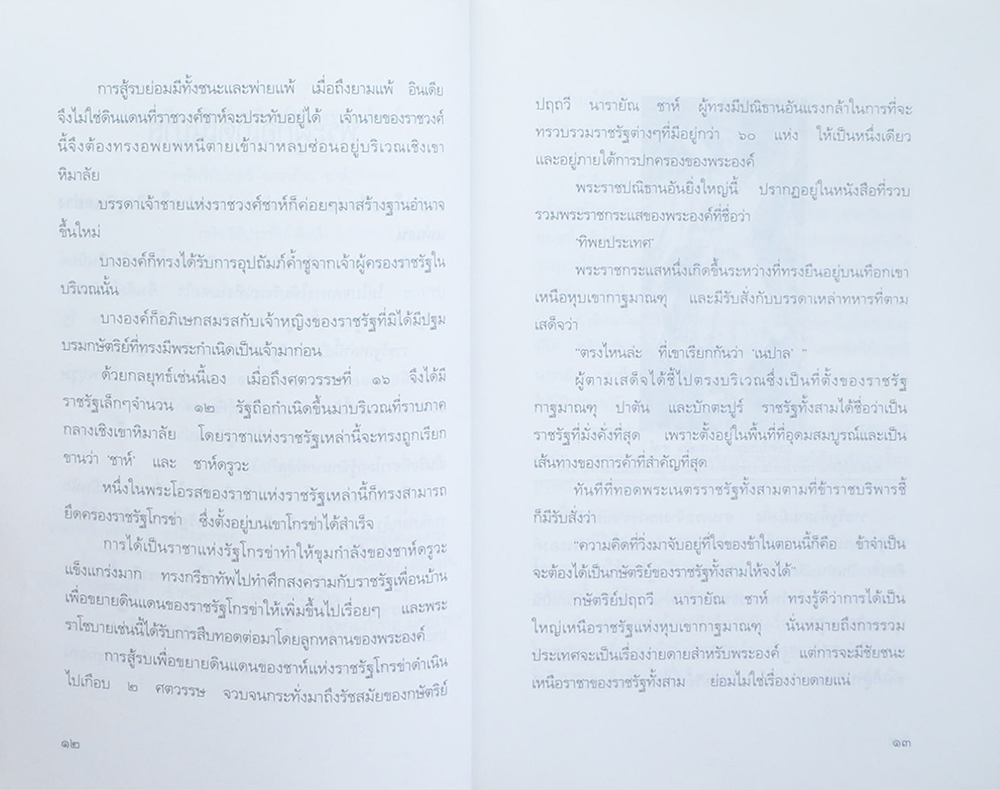 การสู้รบย่อมมีทั้งชนะและพ่ายแพ้ เมื่อถึงยามแพ้ อินเดีย
จึงไม่ใช่ดินแดนที่ราชวงศ์ชาห์จะประทับอยู่ได้ เจ้านายของราชวงศ์
นี้จึงต้องทรงอพยพหนีตายเข้ามาหลบซ่อนอยู่บริเวณเชิงเขา
หิมาลัย
บรรดาเจ้าชายแห่งราชวงศ์ชาห์ก็ค่อยๆมาสร้างฐานอำนาจ
ขึ้นใหม่
บางองค์ก็ทรงได้รับการอุปถัมภ์ค้ำชูจากเจ้าผู้ครองราชรัฐใน
บริเวณนั้น
บางองค์ก็อภิเษกสมรสกับเจ้าหญิงของราชรัฐที่มิได้มีปฐม
บรมกษัตริย์ที่ทรงมีพระกำเนิดเป็นเจ้ามาก่อน
ด้วยกลยุทธ์เช่นนี้เอง เมื่อถึงศตวรรษที่ ๑๖ จึงได้มี
ราชรัฐเล็กๆจำนวน ๑๒ รัฐถือกำเนิดขึ้นมาบริเวณที่ราบภาค
กลางเชิงเขาหิมาลัย โดยราชาแห่งราชรัฐเหล่านี้จะทรงถูกเรียก
ขานว่า 'ชาห์' และ ชาห์ดรูวะ
หนึ่งในพระโอรสของราชาแห่งราชรัฐเหล่านี้ก็ทรงสามารถ
ยึดครองราชรัฐโกรข่า ซึ่งตั้งอยู่บนเขาโกรข่าได้สำเร็จ
การได้เป็นราชาแห่งรัฐโกรข่าทำให้ขุมกำลังของชาห์ดรูวะ
แข็งแกร่งมาก ทรงกรีธาทัพไปทำศึกสงครามกับราชรัฐเพื่อนบ้าน
เพื่อขยายดินแดนของราชรัฐโกรข่าให้เพิ่มขึ้นไปเรื่อยๆ และพระ
ราโชบายเช่นนี้ได้รับการสืบทอดต่อมาโดยลูกหลานของพระองค์
การสู้รบเพื่อขยายดินแดนของชาห์แห่งราชรัฐโกรข่าดำเนิน
ไปเกือบ ๒ ศตวรรษ จวบจนกระทั่งมาถึงรัชสมัยของกษัตริย์
๑๒
ปฤถวี นารายัณ ชาห์ ผู้ทรงมีปณิธานอันแรงกล้าในการที่จะ
ทรวบรวมราชรัฐต่างๆที่มีอยู่กว่า ๖๐ แห่ง ให้เป็นหนึ่งเดียว
และอยู่ภายใต้การปกครองของพระองค์
พระราชปณิธานอันยิ่งใหญ่นี้ ปรากฏอยู่ในหนังสือที่รวบ
รวมพระราชกระแสของพระองค์ที่ชื่อว่า
'ทิพยประเทศ'
พระราชกระแสหนึ่งเกิดขึ้นระหว่างที่ทรงยืนอยู่บนเทือกเขา
เหนือหุบเขากาฐมาณฑุ และมีรับสั่งกับบรรดาเหล่าทหารที่ตาม
เสด็จว่า
"ตรงไหนล่ะ ที่เขาเรียกกันว่า 'เนปาล' "
ผู้ตามเสด็จได้ชี้ไปตรงบริเวณซึ่งเป็นที่ตั้งของราชรัฐ
กาฐมาณฑุ ปาตัน และบักตะปูร์ ราชรัฐทั้งสามได้ชื่อว่าเป็น
ราชรัฐที่มั่งคั่งที่สุด เพราะตั้งอยู่ในพื้นที่ที่อุดมสมบูรณ์และเป็น
เส้นทางของการค้าที่สำคัญที่สุด
ทันทีที่ทอดพระเนตรราชรัฐทั้งสามตามที่ข้าราชบริพารชี้
ก็มีรับสั่งว่า
"ความคิดที่วิ่งมาจับอยู่ที่ใจของข้าในตอนนี้ก็คือ ข้าจำเป็น
จะต้องได้เป็นกษัตริย์ของราชรัฐทั้งสามให้จงได้"
กษัตริย์ปฤถวี นารายัณ ชาห์ ทรงรู้ดีว่าการได้เป็น
ใหญ่เหนือราชรัฐแห่งหุบเขากาฐมาณฑุ นั่นหมายถึงการรวม
ประเทศจะเป็นเรื่องง่ายดายสำหรับพระองค์ แต่การจะมีชัยชนะ
เหนือราชาของราชรัฐทั้งสาม ย่อมไม่ใช่เรื่องง่ายดายแน่
๑๓